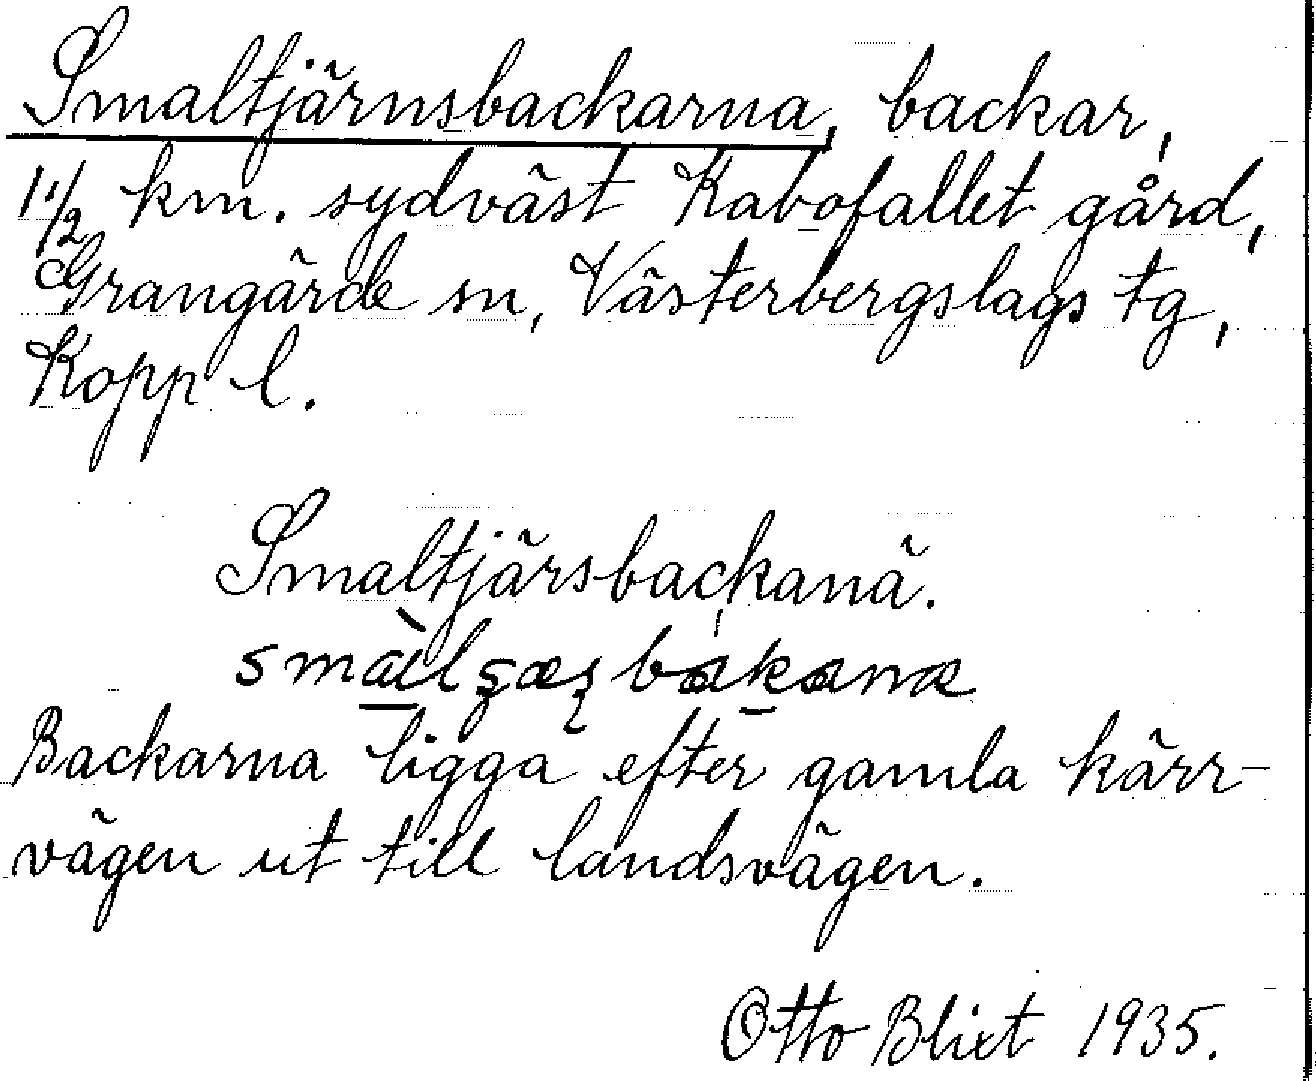 Smaltjärnsbackarna, backar,
1 1/2 km. sydväst Kabofallet gård,
Grangärde sn, Västerbergslags tg,
Kopp l.
Smaltjärsbackanä.
Backarna ligga efter gamla kärr-
vägen ut till landsvägen.
Otto Blixt 1935.